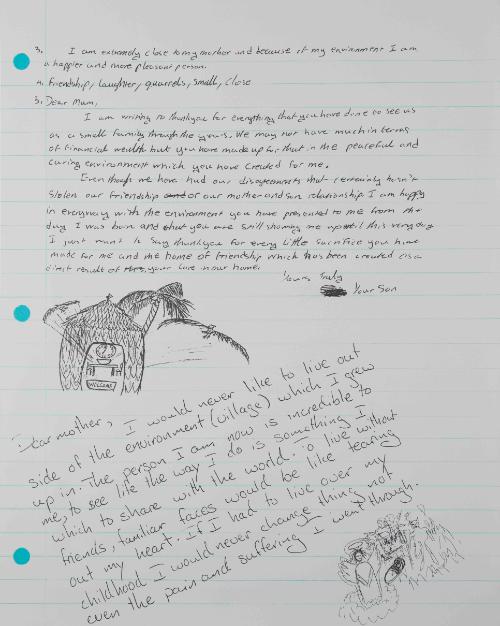 3. I am extremely close to my mother and because of my environment I am
a happier and more pleasant person.
4. Friendship, laughter, quarrels, small, close
5. Dear Mum,
I am writing to thankyou for everything that you have done to see us
as a small family through the years. We may not have much in terms
of financial wealth but you have made up for that in the peaceful and
caring environment which you have created for me.
Even though we have had our disagreements that certainly hasn't
stolen our friendship or our mother and son relationship. I am happy
in everyway with the environment you have presented to me from the
day I was born and what you are still showing me up until this very day
I just want to say thankyou for every little sacrifice you have
made for me and the home of friendship which has been created as a
direct result of your love in our home.
Yours Truly
Your Son
WELCOME
Dear mother, I would never like to live out
side of the environment (village) which I grew
up in. The person I am now is incredible to
me, to see life the way I do is something I
which to share with the world. To live without
friends, familiar faces would be like tearing
out my heart. If I had to live over my
childhood I would never change thing not
even the pain and suffering I went through.